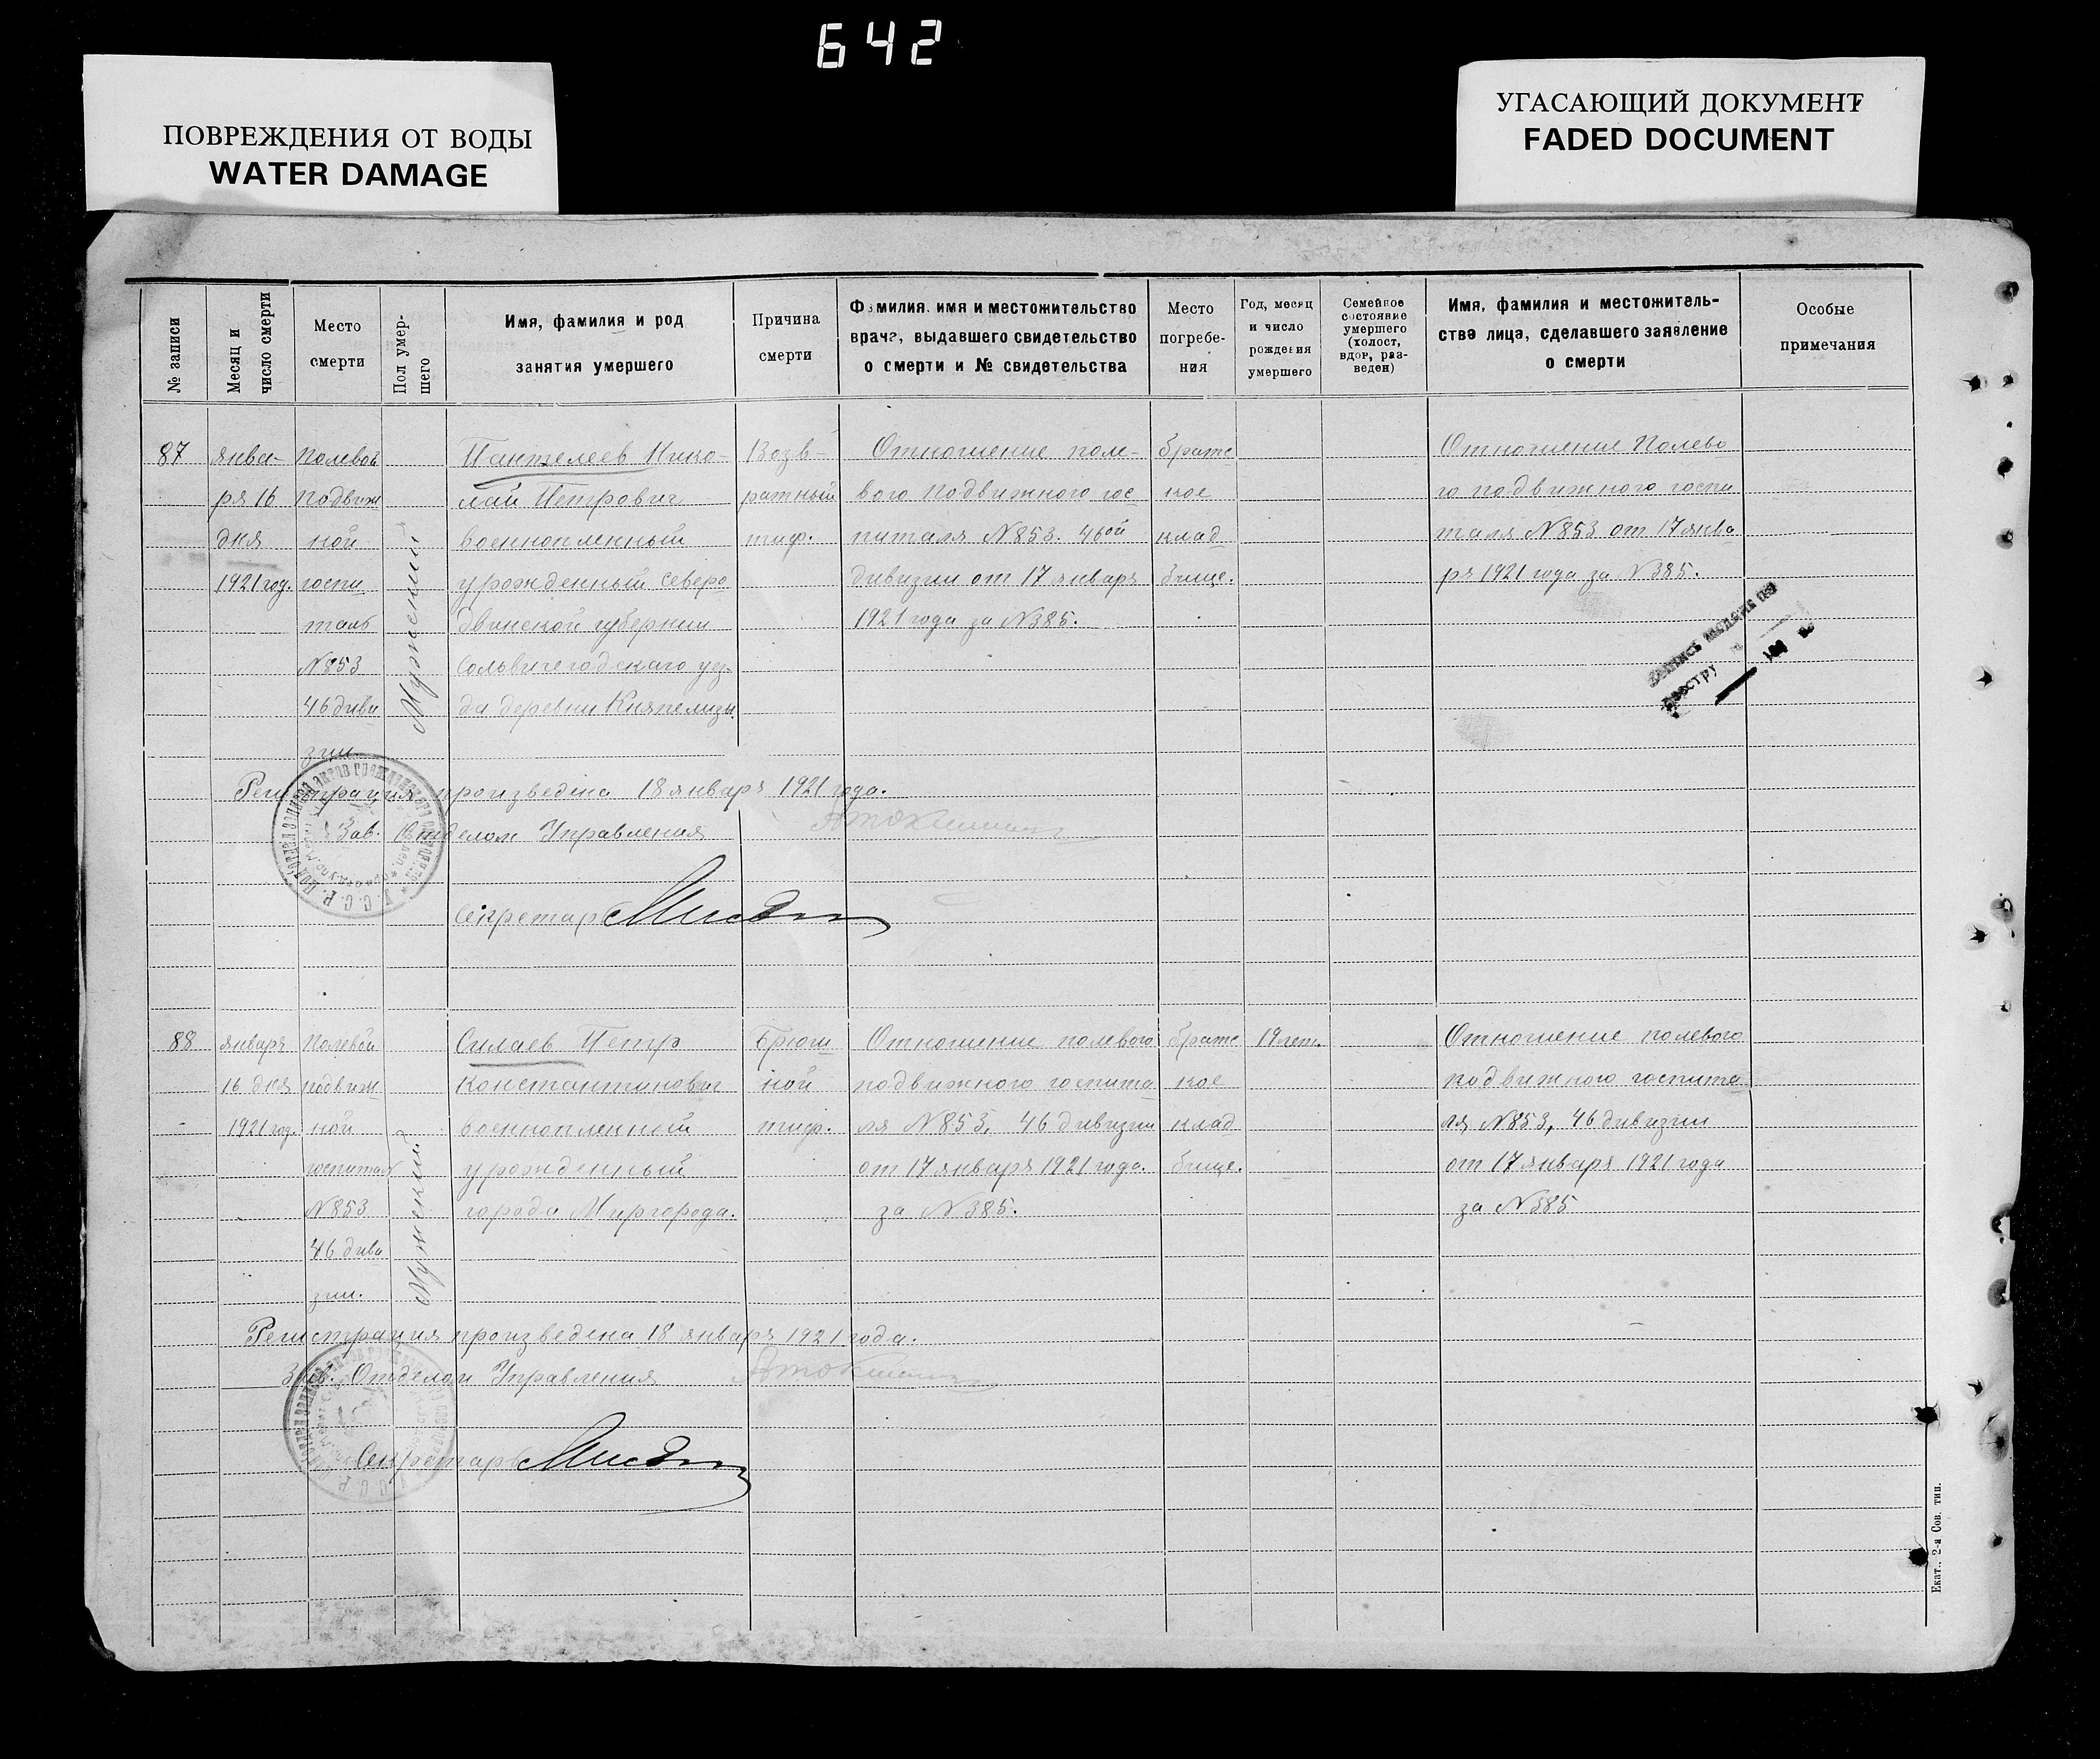 642
ПОВРЕЖДЕНИЯ ОТ ВОДЫ
WATER DAMAGE
УГАСАЮЩИЙ ДОКУМЕНТ
FADED DOCUMENT
№ записи
Месяц и
число смерти
Место
смерти
Пол умер-
шего
Имя, фамилия и род
занятия умершего
Причина
смерти
Фамилия, имя и местожительство
врача, выдавшего свидетельство
о смерти и № свидетельства
Место
погребе-
ния
Год, месяц
и число
рождения
умершего
Семейное
состояние
умершего
(холост,
вдов, раз-
веден)
Имя, фамилия и местожитель-
ства лица, сделавшего заявление
о смерти
Особые
примечания
87
янва-
ря 16
дня
1921 год.
Полевой
подвиж
ной
госпи
таль
№853
46 диви
зии.
Мужеский
Пантелеев Нико-
лай Петрович
военнопленный
урожденный Северо
двинской губернии
Сольвичегодскаго уез-
да деревни
Возв-
ратный
тиф.
Отношение поле-
вого подвижного гос
питаля №853. 46ой
дивизии от 17 января
1921 года за №385.
братс
кое
клад
бище.
Отношение Полево
го подвижного госпи
таля №853 от 17 янва
ря 1921 года за №385.
Регистрация произведена 18 января 1921 года.
Зав. Отделом Управления
Секретарь
88
января
16 дня
1921 год.
Полевой
подвиж
ной
госпитал
№853
46 диви
зии.
Мужеский
Силаев Петр
Константинович
военнопленный
урожденный
города Миргорода.
Брюш
ной
тиф.
Отношение полевого
подвижного госпита
ля №853, 46 дивизии
от 17 января 1921 года.
за №385.
братс
кое
клад
бище.
19 лет.
Отношение полевого
подвижного госпита
ля №853, 46 дивизии
от 17 января 1921 года
за №385
Регистрация произведена 18 января 1921 года.
Зав. Отделом Управления
Секретарь
Екат., 2-я Сов. тип.